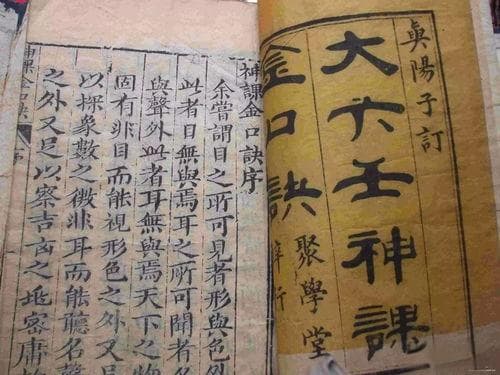 眞陽子訂
大六壬神課
金口訣
聚學堂
梓行
神課金口訣序
余嘗謂目之所可見者形與色外
此者目無與焉耳之所可聞者
與聲外此者耳無與焉天下之物
固有非目而能視形色之外又足
以探象數之微非耳而能聽名
之外又足以察吉凶之垗密庸
神課金口訣